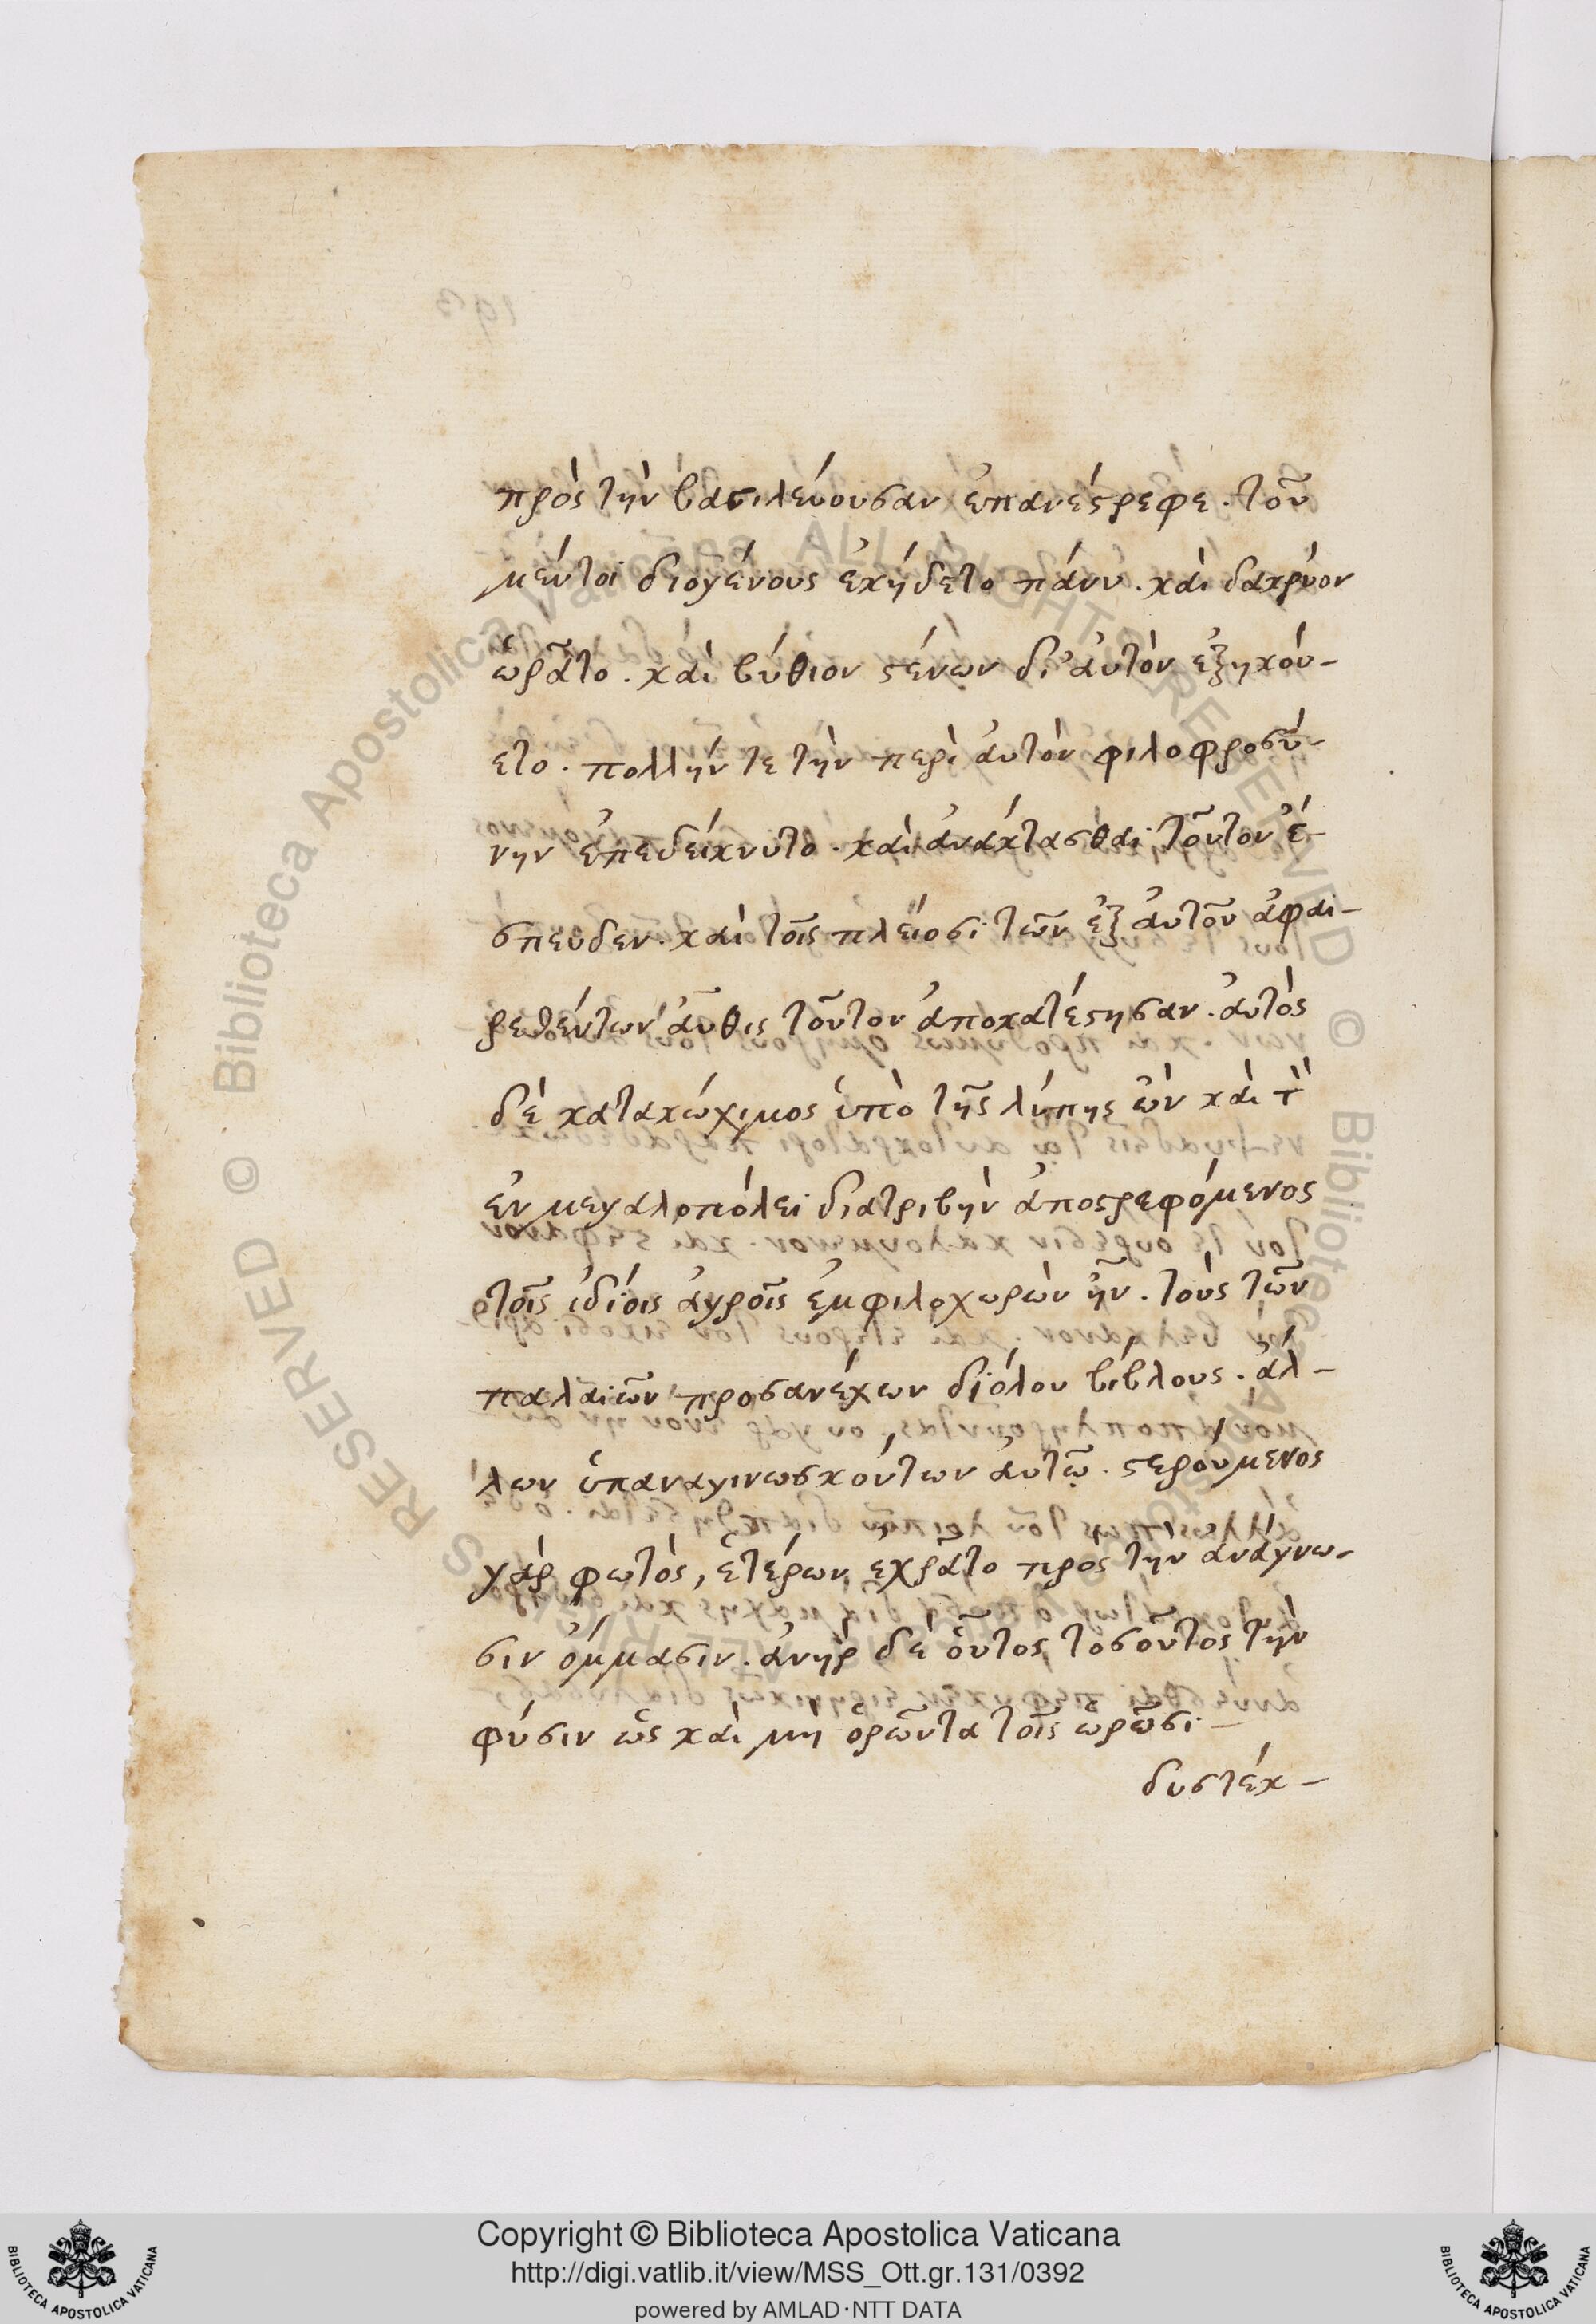 πρὸς τὴν βασιλεύουσαν ἐπανέϛρεφε. τοῦ
μέντοι διογένους ἐκήδετο πάνυ. καὶ δακρύον
ὡρᾶτο. καὶ βύθιον ϛένων δι' ἀυτὸν ἐξηκόυ-
ετο. πολλήν τε τὴν περὶ ἀυτὸν φιλοφροσύ-
νην ἐπεδείκνυτο. καὶ ἀνακτᾶσθαι τοῦτον ἔ-
σπευδεν. καὶ τοῖς πλείοσι τῶν ἐξ ἀυτοῦ ἀφαι-
ρεθέντων ἀῦθις τοῦτον ἀποκατέϛησαν. ἀυτὸς
δὲ κατακώχιμος ὑπὸ τῆς λύπης ὢν καὶ τ̀
ἐν μεγαλοπόλει διατριβὴν ἀποϛρεφόμενος
τοῖς ἰδίοις ἀγροῖς ἐμφιλοχωρῶν ἦν. τοὺς τῶν
παλαιῶν προσανέχων διόλου βίβλους. ἄλ-
λων ὑπαναγινωσκόντων ἀυτῷ. ϛερούμενος
γὰρ φωτὸς, ἑτέρων ἐχρᾶτο πρὸς τὴν ἀνάγνω-
σιν ὄμμασιν. ἀνὴρ δὲ ὁῦτος τοσοῦτος τὴν
φύσιν ὡς καὶ μὴ ὁρῶντα τοῖς ὡρῶσι-
δυστέκ-
Copyright © Biblioteca Apostolica Vaticana
http://digi.vatlib.it/view/MSS_Ott.gr.131/0392
powered by AMLAD·NTT DATA
BIBLIOTECA APOSTOLICA VATICANA
BIBLIOTECA APOSTOLICA VATICANA